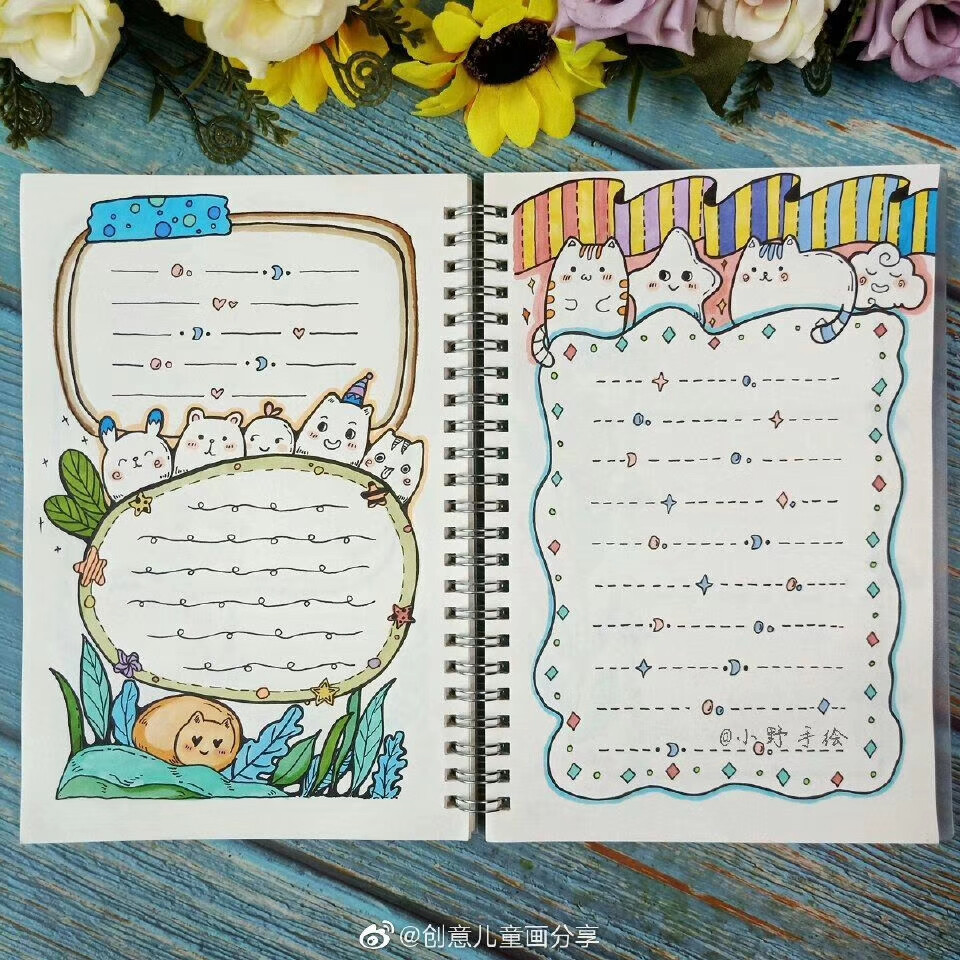 @小野手绘
@创意儿童画分享